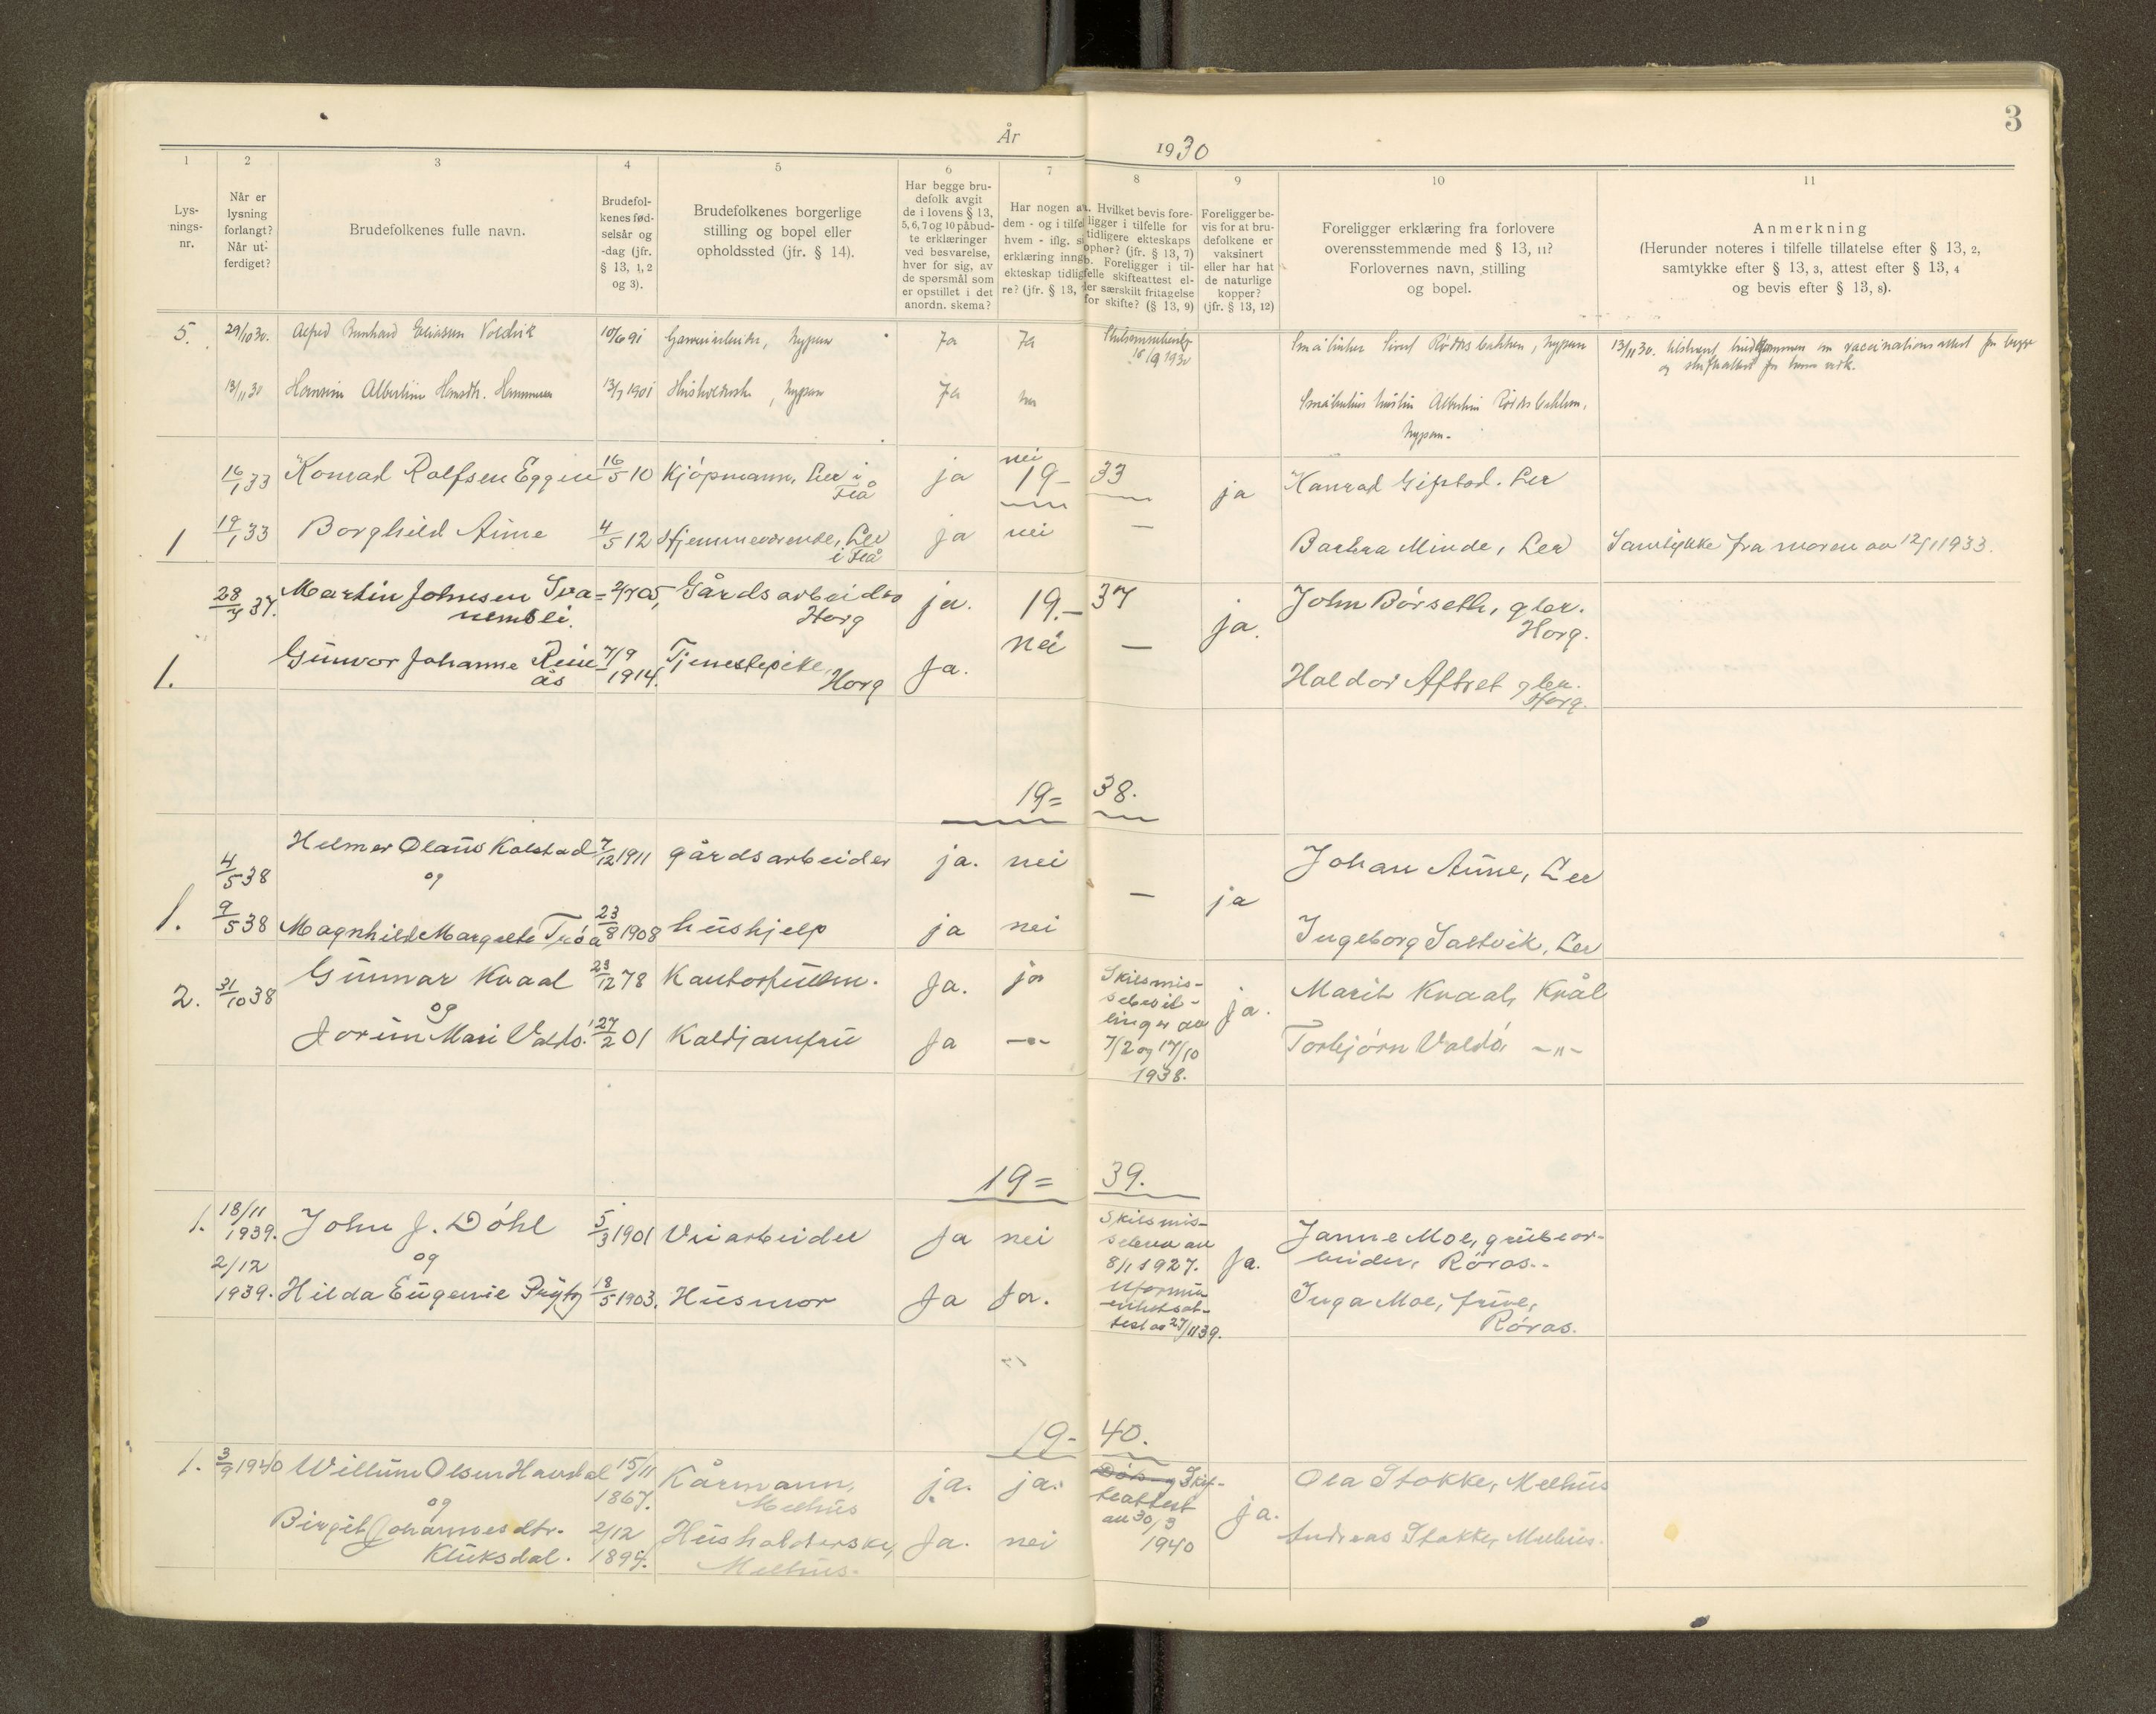 3
År 1930
1 2 3 4 5 6 7 8 9 10 11
Lys-
nings-
nr.
Når er
lysning
forlangt?
Når ut-
ferdiget?
Brudefolkenes fulle navn.
Brudefol-
kenes fød-
selsår og
-dag (jfr.
§ 13, 1, 2
og 3).
Brudefolkenes borgerlige
stilling og bopel eller
opholdssted (jfr. § 14).
Har begge bru-
defolk avgit
de i lovens § 13,
5, 6, 7 og 10 påbud-
te erklæringer
ved besvarelse,
hver for sig, av
de spørsmål som
er opstillet i det
anordn. skema?
Har nogen a
dem - og i tilfel
hvem - iflg. s
erklæring inng
ekteskap tidlig
re? (jfr. § 13,
. Hvilket bevis fore-
ligger i tilfelle for
tidligere ekteskaps
ophør? (jfr. § 13, 7)
b. Foreligger i til-
felle skifteattest el-
ler særskilt fritagelse
for skifte? (§ 13, 9)
Foreligger be-
vis for at bru-
defolkene er
vaksinert
eller har hat
de naturlige
kopper?
(jfr. § 13, 12)
Foreligger erklæring fra forlovere
overensstemmende med § 13, 11?
Forlovernes navn, stilling
og bopel.
Anmerkning
(Herunder noteres i tilfelle tillatelse efter § 13, 2,
samtykke efter § 13, 3, attest efter § 13, 4
og bevis efter § 13, 8).
5. 29/10 30. Alfred Bernhard Eliassen Voldvik 10/6 91 Ja Ja
18/9 1930
13/11 30.
13/11 30 Albertine Hansdtr. 13/7 1901 Ja
16/1 33 Konrad Rolfsen Eggen 16/5 10 Kjøpmann, Ler i
Flå
ja nei
19- 33
ja Konrad Giptsd. Ler
1 19/1 33 Borghild Aune 4/5 12 Hjemmeværende, Ler
i Flå
ja nei — Barbra Minde, Ler Samtykke fra moren av 12/1 1933.
28/3 37. Martin Johnsen Sva=
nembli.
2/7 05, Gårdsarbeider
Horg
ja. 19.- 37 ja. John Børseth, gbr.
Horg.
1. Gunvor Johanne Rein-
ås
7/9
1914. Tjenestepike,
Horg
Ja. nei — Haldor Aftret gbr.
Horg.
19= 38.
4/5 38 Helmer Olaus Kolstad 7/12 1911 gårdsarbeider ja. nei — ja Johan Aune, Ler
og
1. 9/5 38 Magnhild Margrethe Trøa 23/8 1908 hushjelp ja nei Ingeborg Saltvik, Ler
2. 31/10 38 Gunnar Kvaal 23/12 78 Kontorfullm. Ja. ja Skilsmis-
sebevil-
linger av
7/2 og 17/10
1938.
ja. Marit Kvaal, Kvål
og
Jorun Mari Valdø. 27/2 01 Kaldjomfru Ja -"- Torbjørn Valdø -"-
19= 39.
1. 18/11
1939. John J. Döhl 5/3 1901 Veiarbeider Ja nei Skilsmis-
sebrev av
8/1 1927.
Ja. Janne Moe, grubear-
beider, Röros..
og
2/12
1939. Hilda Eugenie Prytz 18/5 1903. Husmor Ja Ja. Uformu-
enhetsat-
test av 27/11 39.
Inga Moe, frue,
Röros.
19- 40.
1. 3/9 1940 Willum Olsen Havdal 15/11
1867. Kårmann,
Melhus
ja. ja. Skif-
teattest
av 30/3
1940
ja. Ola Stokke, Melhus
og
Birgit Johannesdtr.
Kluksdal. 2/12
1894. Husholderske,
Melhus.
Ja. nei Andreas Stokke, Melhus.